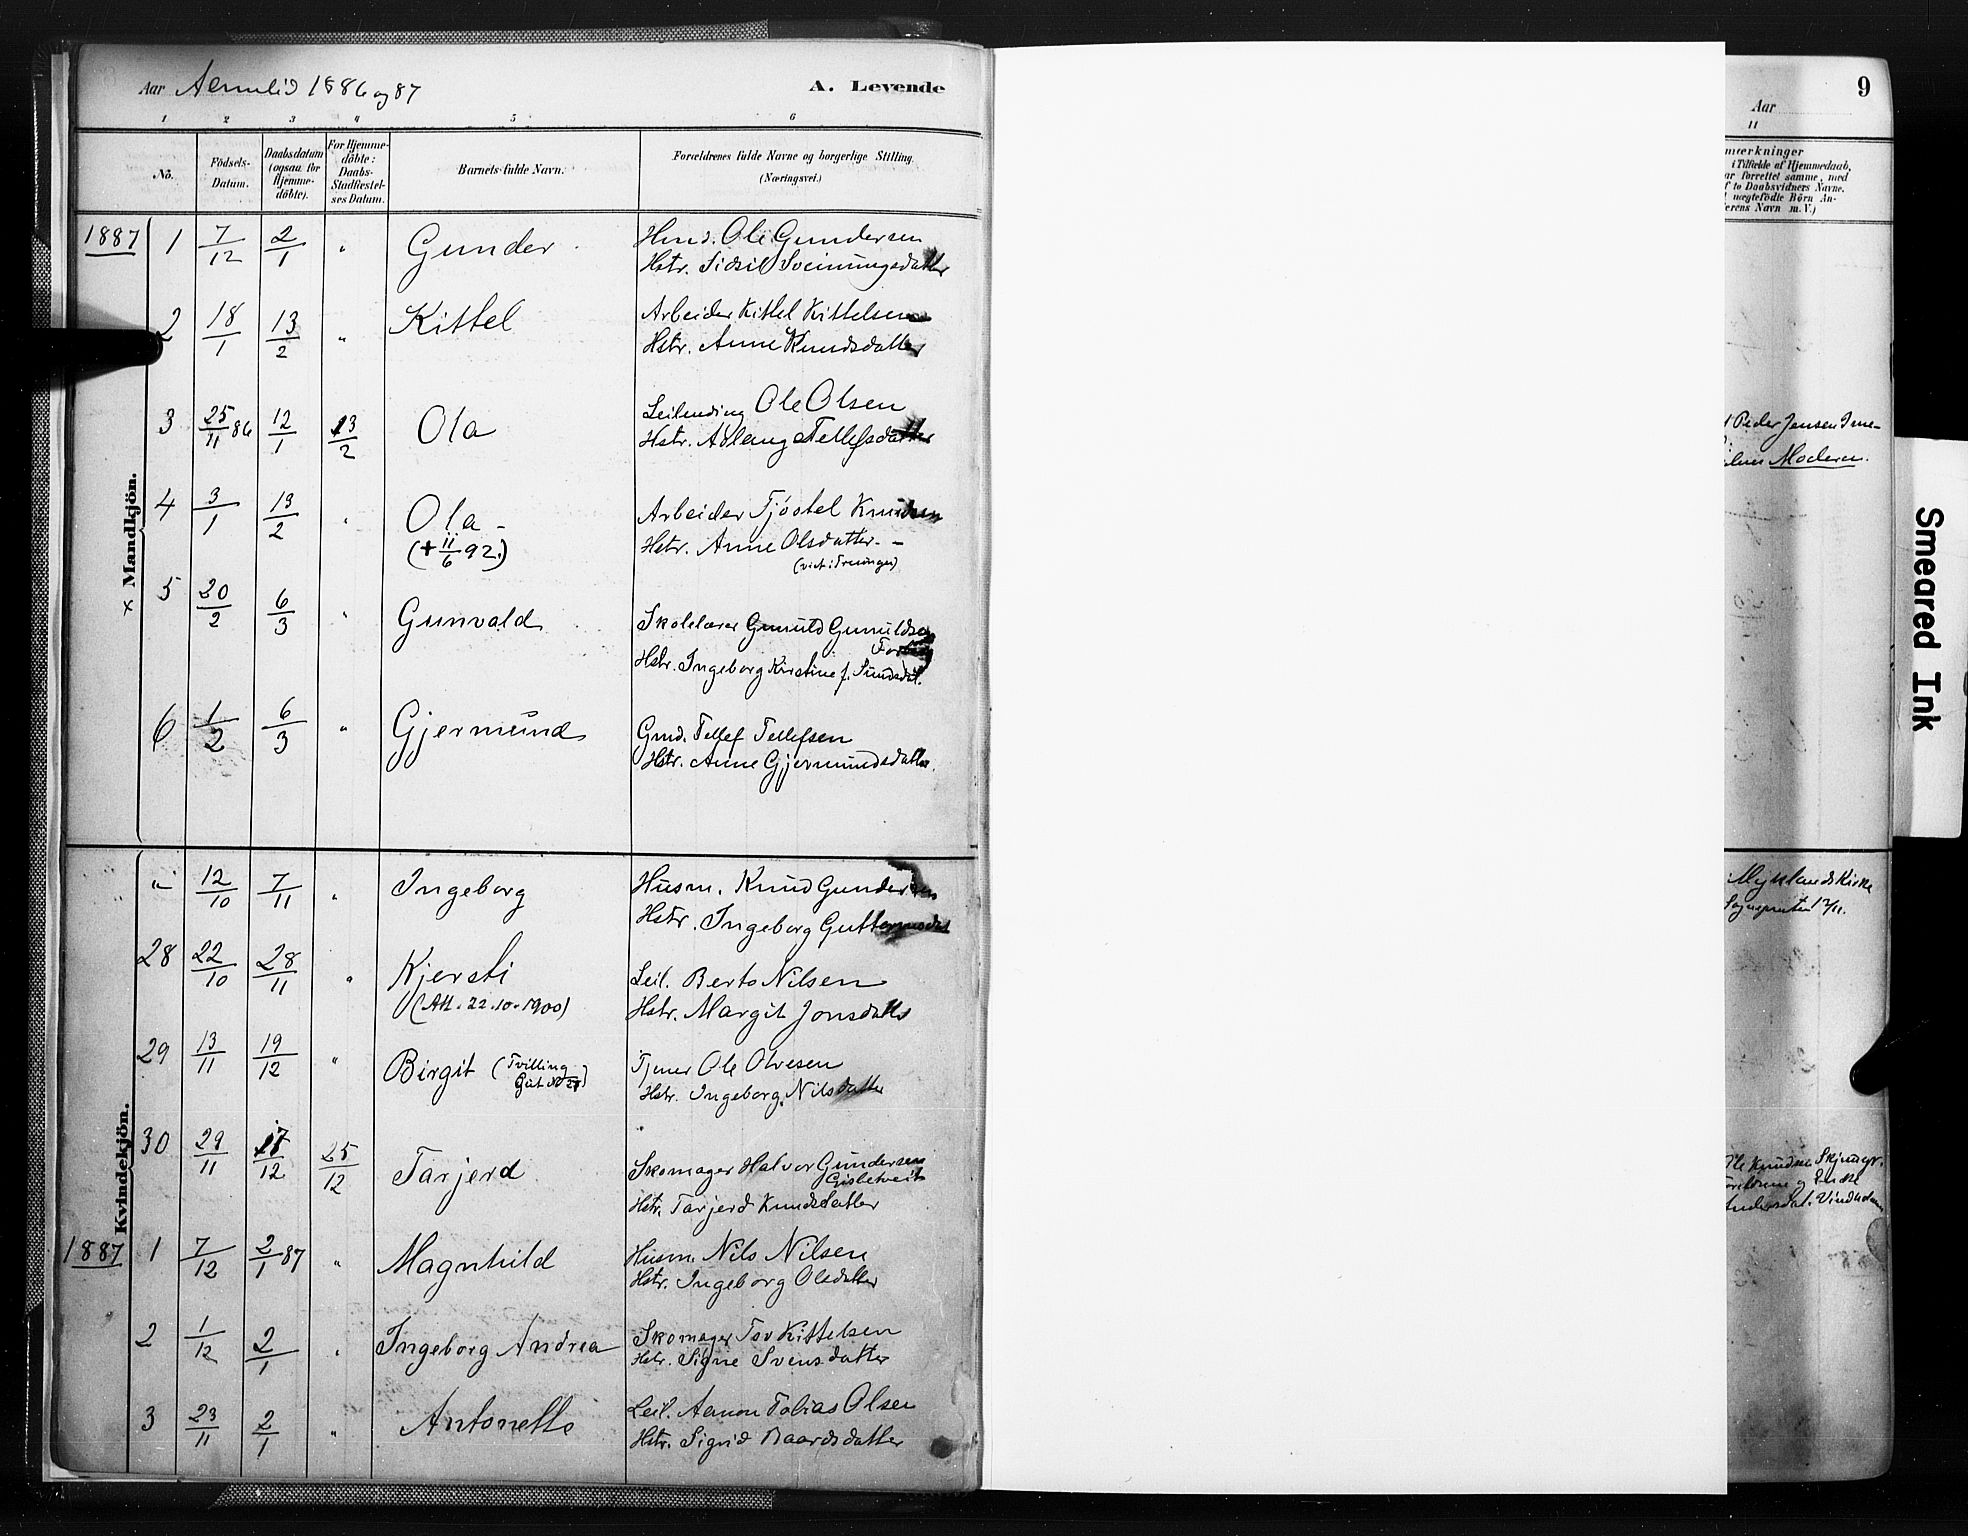 Aar Aamlid 1886 og 87
A. Levende
1 2 3 4 5 6
No.
Födsels-Datum.
Daabsdatum (ogsaa for Hjemme-döbte).
For Hjemme-döbte: Daabs-Stadfæstel-ses Datum.
Barnets fulde Navn.
Forældrenes fulde Navne og borgerlige Stilling.
(Næringsvei.)
× Mandkjön.
1887 1 7/12 2/1 " Gunder
Ole Gundersen
Hstr. Sidsil Sveinungsdatter
2 18/1 13/2 " Kittel
Arbeider Kittel Kittelsen
Hstr. Anne Knudsdatter
3 25/11 86 12/1 13/2 Ola
Leilending Ole Olsen
Hstr. Aslaug Tellefsdatter
4 3/1 13/2 " Ola
(+ 11/6 92.)
Arbeider Tjöstel Knudsen
Hstr. Anne Olsdatter
5 20/2 6/3 " Gunvald
Skolelærer Gunuld Gunuldsen
Hstr. Ingeborg Kirstine f. Sundsdal.
6 1/2 6/3 " Gjermund
Gmd. Tellef Tellefsen
Hstr. Anne Gjermundsdatter.
Kvindekjön.
" 12/10 7/11 " Ingeborg
Husm. Knud Gundersen
Hstr. Ingeborg Guttormsdat
28 22/10 28/11 " Kjersti
(Att. 22.10.1900)
Leil. Berto Nilsen
Hstr. Margit Jonsdatter
29 13/11 19/12 " Birgit (Tvilling
Gut No 21)
Tjener Ole Olvesen
Hstr. Ingeborg Nilsdatter
30 29/11 17/12 25/12 Tarjerd
Skomager Halvor Gundersen
Gislestveit
Hstr. Tarjerd Knudsdatter
1887 1 7/12 2/1 87 " Magnhild
Husm. Nils Nilsen
Hstr. Ingeborg Olsdatter
2 1/12 2/1 " Ingeborg Andrea
Skomager Tov Kittelsen
Hstr. Signe Svensdatter
3 23/11 2/1 " Antonette
Leil. Aanon Tobias Olsen
Hstr. Sigrid Baardsdatter
9
Aar
11
mærkninger
i Tilfælde af Hjemmedaab,
ar forrettet samme, med
f to Daabsvidners Navne.
nægtefödte Börn An-
erens Navn m.V.)
Peder Jensen
Moderen.
Myklands Kirke
Sognepresten 12/11.
Ole Knudsen
Smeared Ink